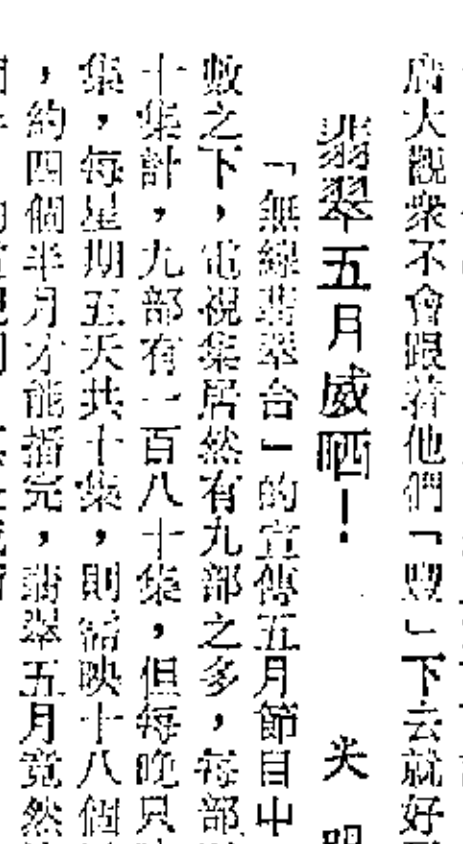 廣大觀衆不會跟着他們「豐」下去就好
翡翠五月威晒！ 光明
「無線翡翠台」的宣傳五月節目中
數之下，電視集居然有九部之多，每部
十集計，九部有一百八十集，但每晚只
集，每星期五天共十集，則需映十八個
，約四個半月才能播完，翡翠五月竟然